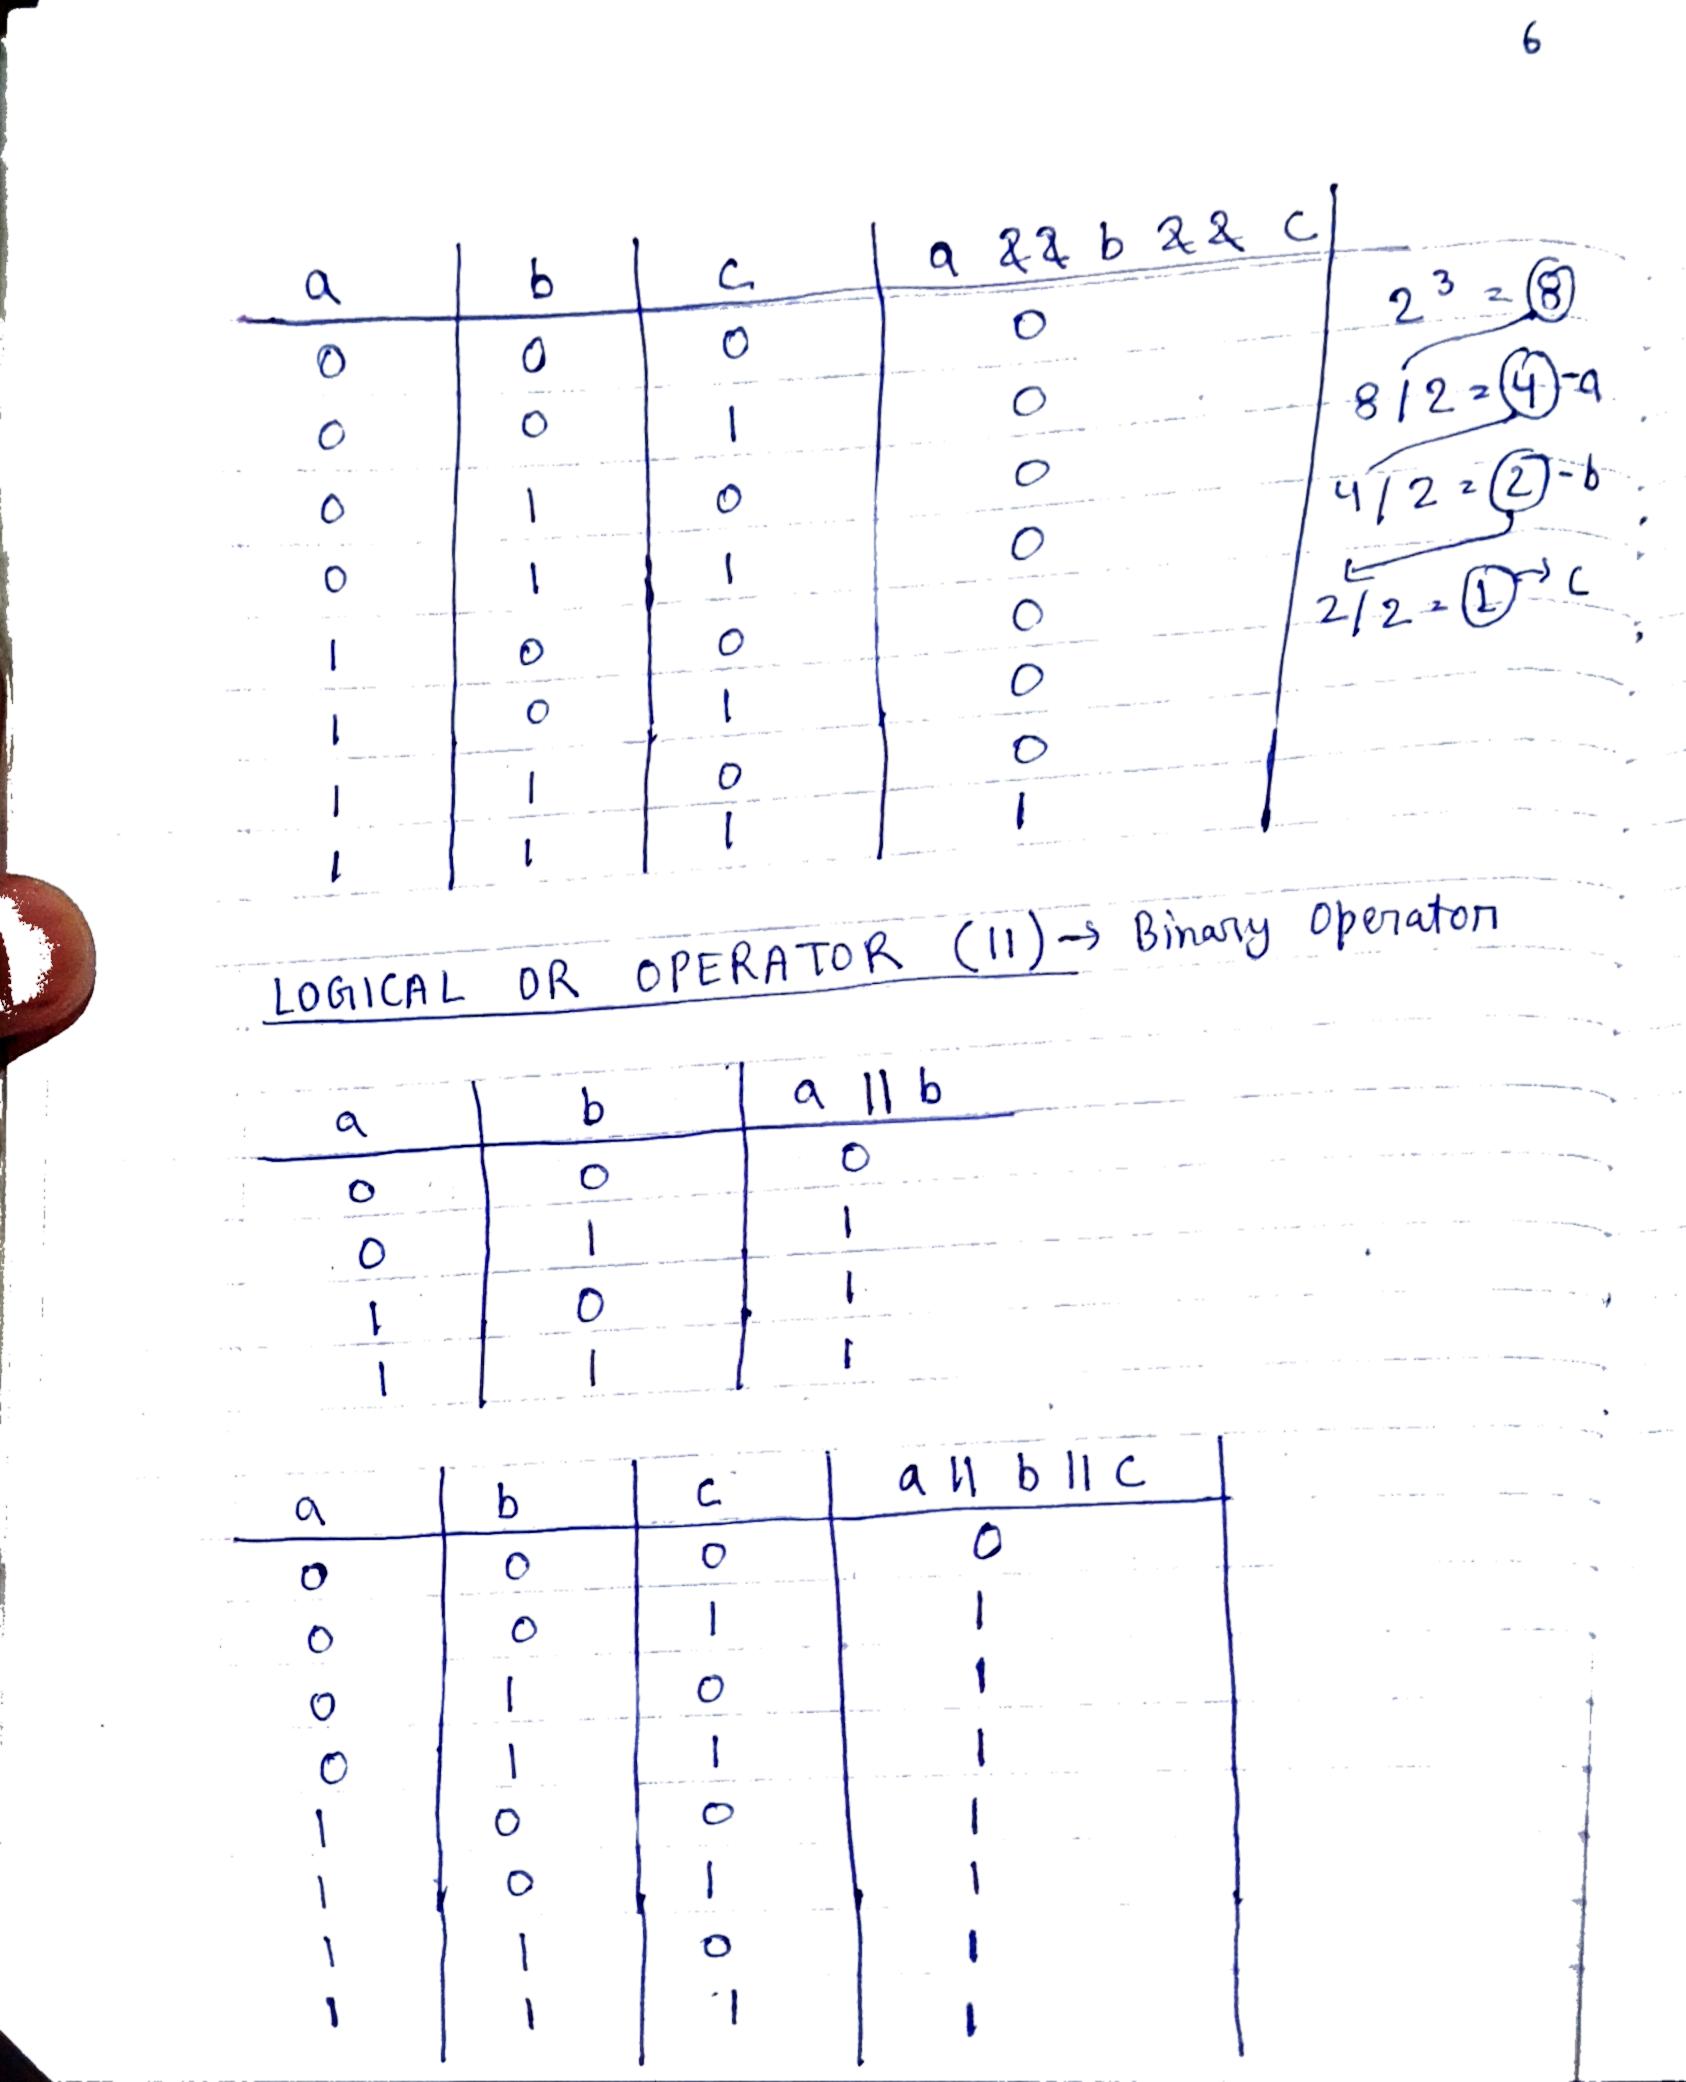 6
a b c a && b && c
0 0 0 0
0 0 1 0
0 1 0 0
0 1 1 0
1 0 0 0
1 0 1 0
1 1 0 0
1 1 1 1
2³ = 8
8/2 = 4 - a
4/2 = 2 - b
2/2 = 1 → c
LOGICAL OR OPERATOR (||) → Binary Operator
a b a || b
0 0 0
0 1 1
1 0 1
1 1 1
a b c a || b || c
0 0 0 0
0 0 1 1
0 1 0 1
0 1 1 1
1 0 0 1
1 0 1 1
1 1 0 1
1 1 1 1